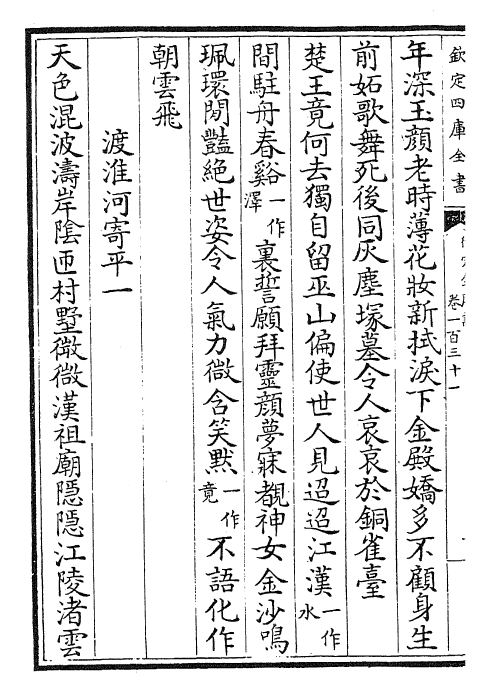 欽定四庫全書
卷一百三十一
年深玉顔老時薄花妝新拭淚下金殿嬌多不顧身生
前妬歌舞死後同灰塵塚墓令人哀哀於銅雀臺
楚王竟何去獨自留巫山偏使世人見迢迢江漢一作水
間駐舟春谿一作澤裏誓願拜靈顔夢寐覩神女金沙鳴
珮環閒豔絶世姿令人氣力微含笑默一作竟不語化作
朝雲飛
渡淮河寄平一
天色混波濤岸陰匝村墅微微漢祖廟隱隱江陵渚雲